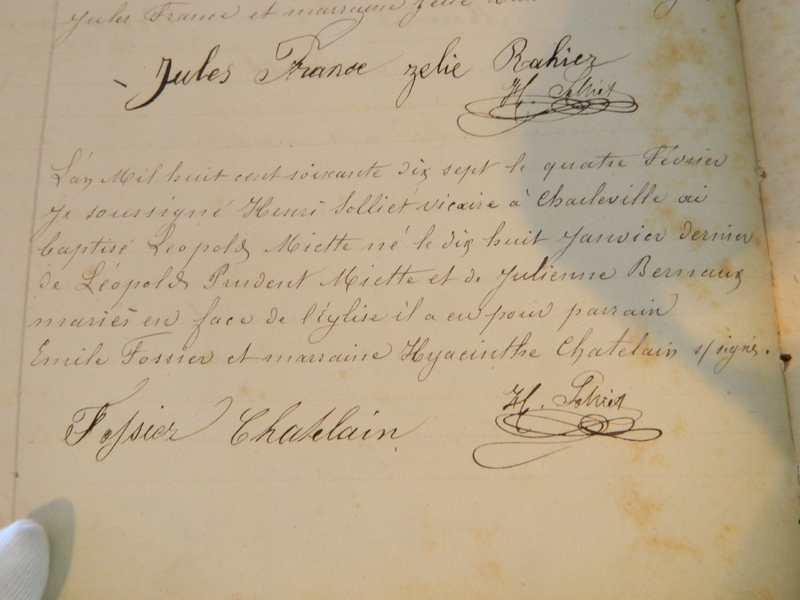 Jules France et marraine Zélie
Jules France zelie Rahiez
H. Solliet
L'an Mil huit cent soixante dix sept le quatre Février
je soussigné Henri Solliet vicaire à Charleville ai
baptisé Léopold Miette né le dix huit Janvier dernier
de Léopold Prudent Miette et de Julienne Bernaux
mariés en face de l'église il a eu pour parrain
Emile Fossier et marraine Hyacinthe Chatelain s/signés.
Fossier Chatelain
H. Solliet